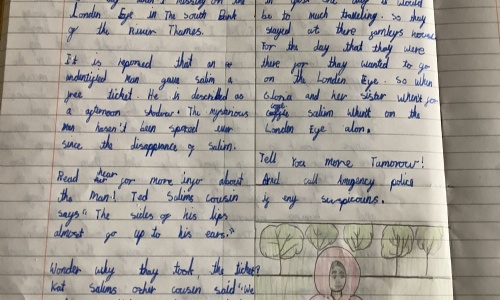 London Eye in The South Bank
of the River Thames.
It is reported that an
undentified man gave salim a
free ticket. He is described as
a afternoon shadow. The mysterious
Man hasen't been spread ever
since the disapperance of salim.
Read hear for more info about
the Man! Ted Salims cousin
says " The sides of his lips
almost go up to his ears."
Wonder why they took the ticket?
Kat Salims other cousin said "We
be to much travelling. So they
stayed at there familys house
For the day that they were
there for they wanted to go
on the London Eye. So when
Gloria and her sister whent for
salim whent on the
London Eye alon.
Tell You more Tumorow!
And call Emergency police
if eny suspicouns.